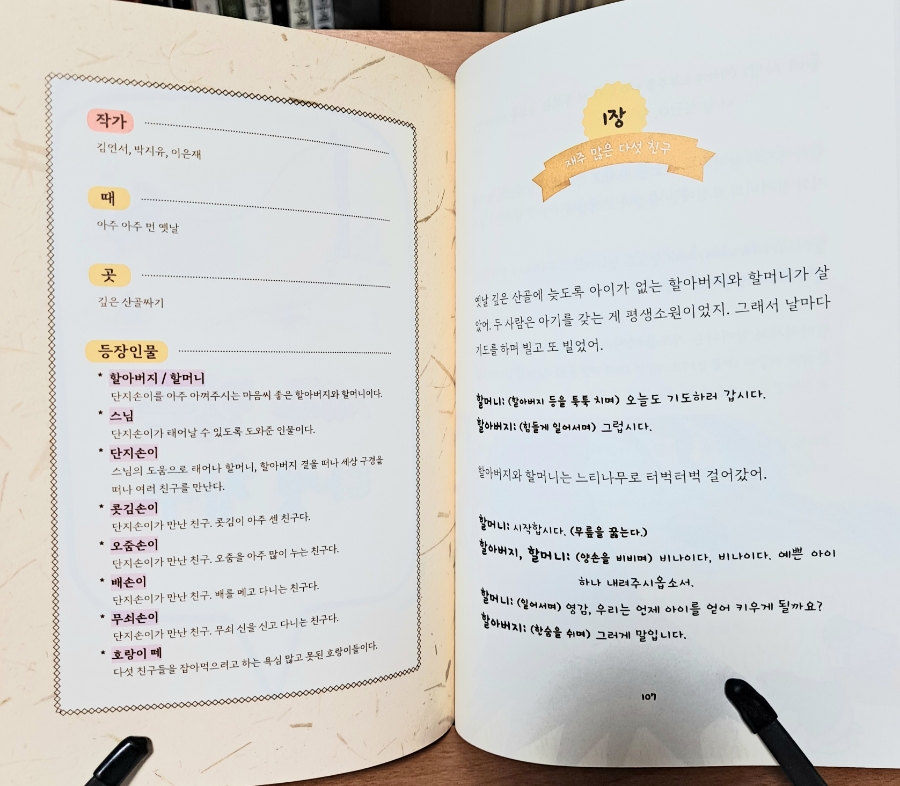 작가
김연서, 박지유, 이은재
때
아주 아주 먼 옛날
곳
깊은 산골짜기
등장인물
* 할아버지 / 할머니
단지손이를 아주 아껴주시는 마음씨 좋은 할아버지와 할머니이다.
* 스님
단지손이가 태어날 수 있도록 도와준 인물이다.
* 단지손이
스님의 도움으로 태어나 할머니, 할아버지 곁을 떠나 세상 구경을
떠나 여러 친구를 만난다.
* 콧김손이
단지손이가 만난 친구. 콧김이 아주 센 친구다.
* 오줌손이
단지손이가 만난 친구. 오줌을 아주 많이 누는 친구다.
* 배손이
단지손이가 만난 친구. 배를 메고 다니는 친구다.
* 무쇠손이
단지손이가 만난 친구. 무쇠 신을 신고 다니는 친구다.
* 호랑이 떼
다섯 친구들을 잡아먹으려고 하는 욕심 많고 못된 호랑이들이다.
1장
재주 많은 다섯 친구
옛날 깊은 산골에 늦도록 아이가 없는 할아버지와 할머니가 살
았어. 두 사람은 아기를 갖는 게 평생소원이었지. 그래서 날마다
기도를 하며 빌고 또 빌었어.
할머니: (할아버지 등을 툭툭 치며) 오늘도 기도하러 갑시다.
할아버지: (힘들게 일어서며) 그럽시다.
할아버지와 할머니는 느티나무로 터벅터벅 걸어갔어.
할머니: 시작합시다. (무릎을 꿇는다.)
할아버지, 할머니: (양손을 비비며) 비나이다, 비나이다. 예쁜 아이
하나 내려주시옵소서.
할머니: (일어서며) 영감, 우리는 언제 아이를 얻어 키우게 될까요?
할아버지: (한숨을 쉬며) 그러게 말입니다.
107